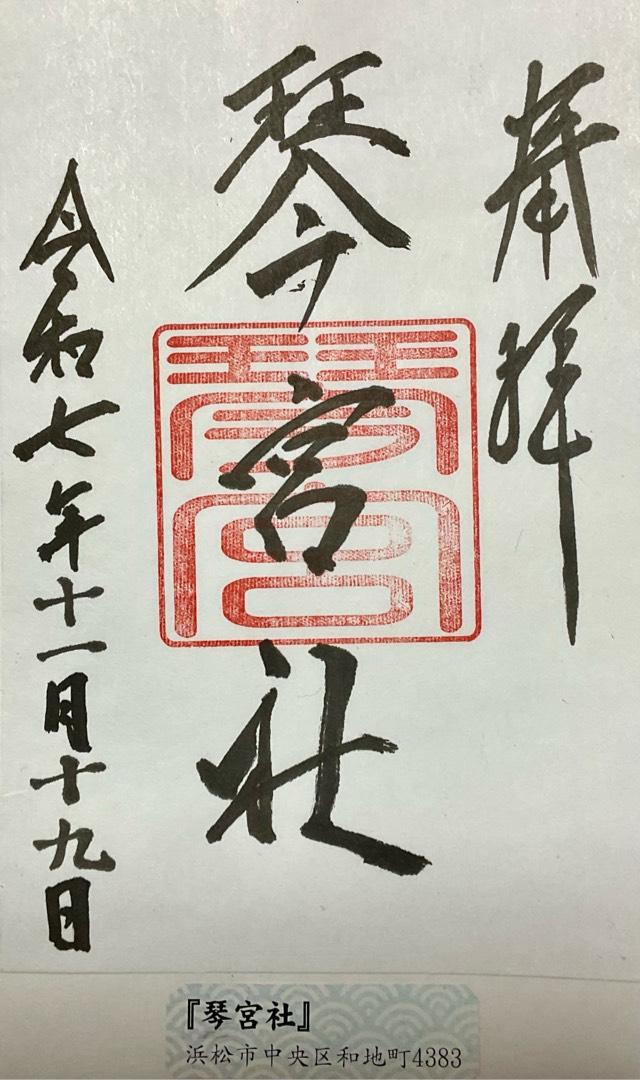 奉拝
琴宮社
琴宮
令和七年十一月十九日
『琴宮社』
浜松市中央区和地町4383